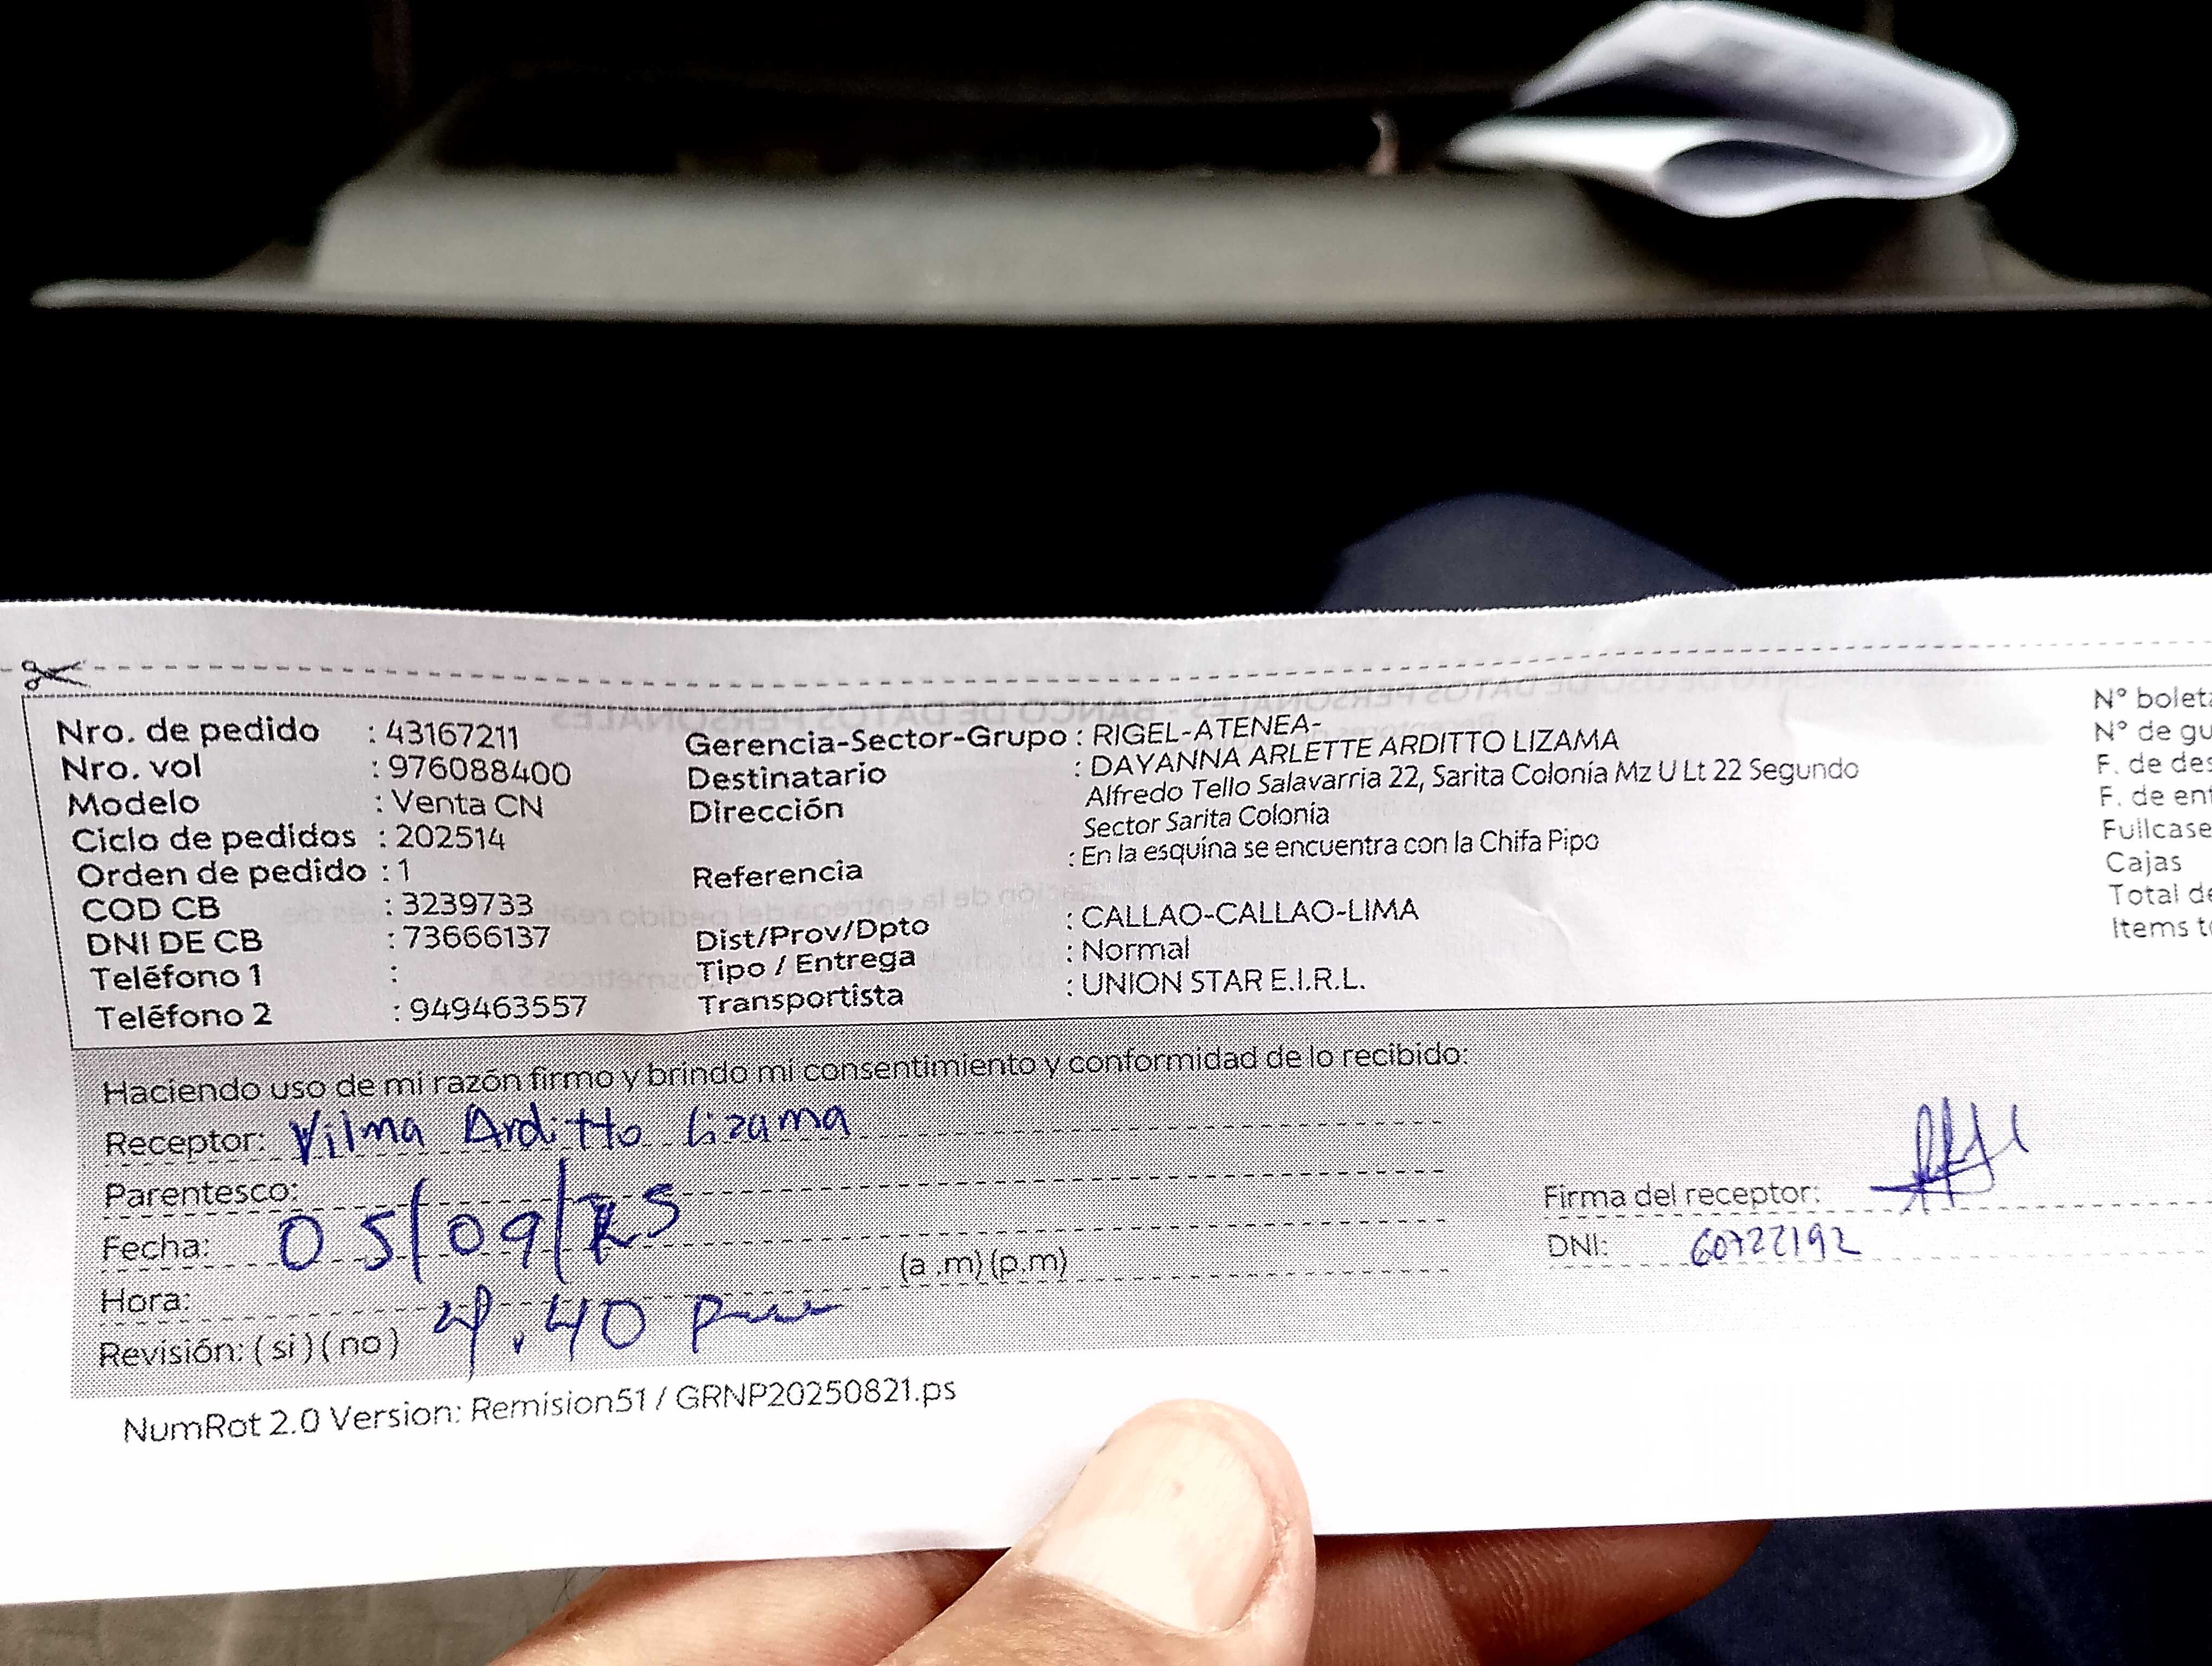 Nro. de pedido : 43167211
Nro. vol : 976088400
Modelo : Venta CN
Ciclo de pedidos : 202514
Orden de pedido : 1
COD CB : 3239733
DNI DE CB : 73666137
Teléfono 1 :
Teléfono 2 : 949463557
Gerencia-Sector-Grupo : RIGEL-ATENEA-
Destinatario : DAYANNA ARLETTE ARDITTO LIZAMA
Dirección Alfredo Tello Salavarria 22, Sarita Colonia Mz U Lt 22 Segundo
Sector Sarita Colonia
Referencia : En la esquina se encuentra con la Chifa Pipo
Dist/Prov/Dpto : CALLAO-CALLAO-LIMA
Tipo / Entrega : Normal
Transportista : UNION STAR E.I.R.L.
N° bolet
N° de gu
F. de des
F. de ent
Fullcase
Cajas
Total de
Items t
Haciendo uso de mi razón firmo y brindo mi consentimiento y conformidad de lo recibido:
Receptor: Vilma Arditto Lizama
Parentesco:
Fecha: 05/09/25
Hora: (a .m) (p.m)
Revisión: ( si ) ( no ) 4.40 pm
Firma del receptor:
DNI: 60722192
NumRot 2.0 Version: Remision51 / GRNP20250821.ps